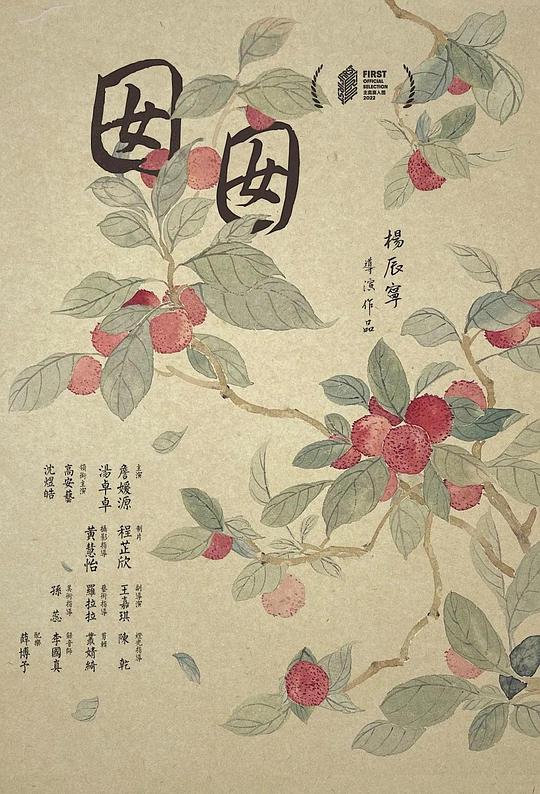 囡囡
FIRST
OFFICIAL
SELECTION
2022
楊辰寧
導演作品
主演
詹媛源
湯卓卓
領銜主演
高安藝
沈煜皓
制片
程芷欣
攝影指導
黃慧怡
副導演
王嘉琪
藝術指導
羅拉拉
美術指導
孫蕊
燈光指導
陳乾
剪輯
叢婧綺
錄音師
李國真
配樂
薛博予